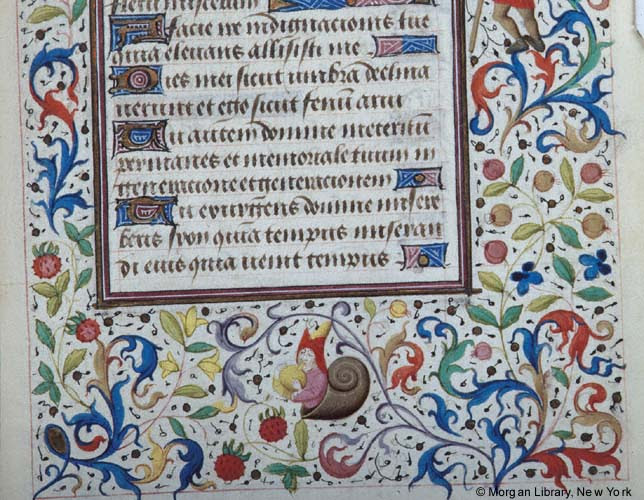 A facie ire indignacionis tue
quia elevans allisisti me
Dies mei sicut umbra declina
verunt et ego sicut fenu͞ arui
Tu autem domine in eternu͞
permanes et memoriale tuum in
generacione et generacionem
Tu exurgens domine misere
beris syon quia tempus miseran
di eius quia uenit tempus
© Morgan Library, New York